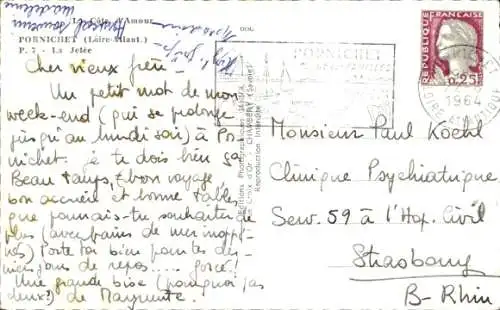 La Côte d'Amour
PORNICHET (Loire-Atlant.)
P. 7 - La Jetée
Cher vieux frère -
Un petit mot de mon
week-end (qui se prolonge
jusqu'au lundi soir) à Por-
nichet. je te dois bien ça
Beau temps, bon voyage,
bon accueil et bonne table,
que pouvais-tu souhaiter de
plus (avec bains de mer inopi-
nés) Porte toi bien pour tes der-
niers jours de repos.....
Une grande bise (pourquoi pas
deux?) de Marguerite.
PORNICHET
REPUBLIQUE FRANÇAISE
0,25
1964
Reproduction Interdite
Monsieur Paul Koehl
Clinique Psychiatrique
Serv. 59 à l'Hop. Civil
Strasbourg
B-Rhin